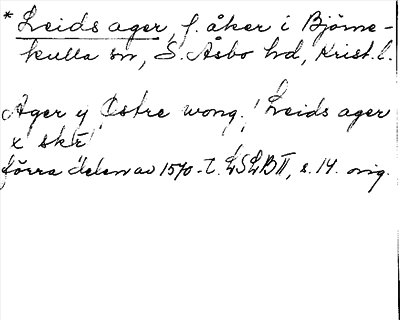 * Leids ager, f. åker i Björne-
kulla sn, S. Åsbo hd, Krist. l.
Ager y Østre wong. / Leids ager
x skr /
förra delen av 1570-t. LSLB II, s. 14. orig.